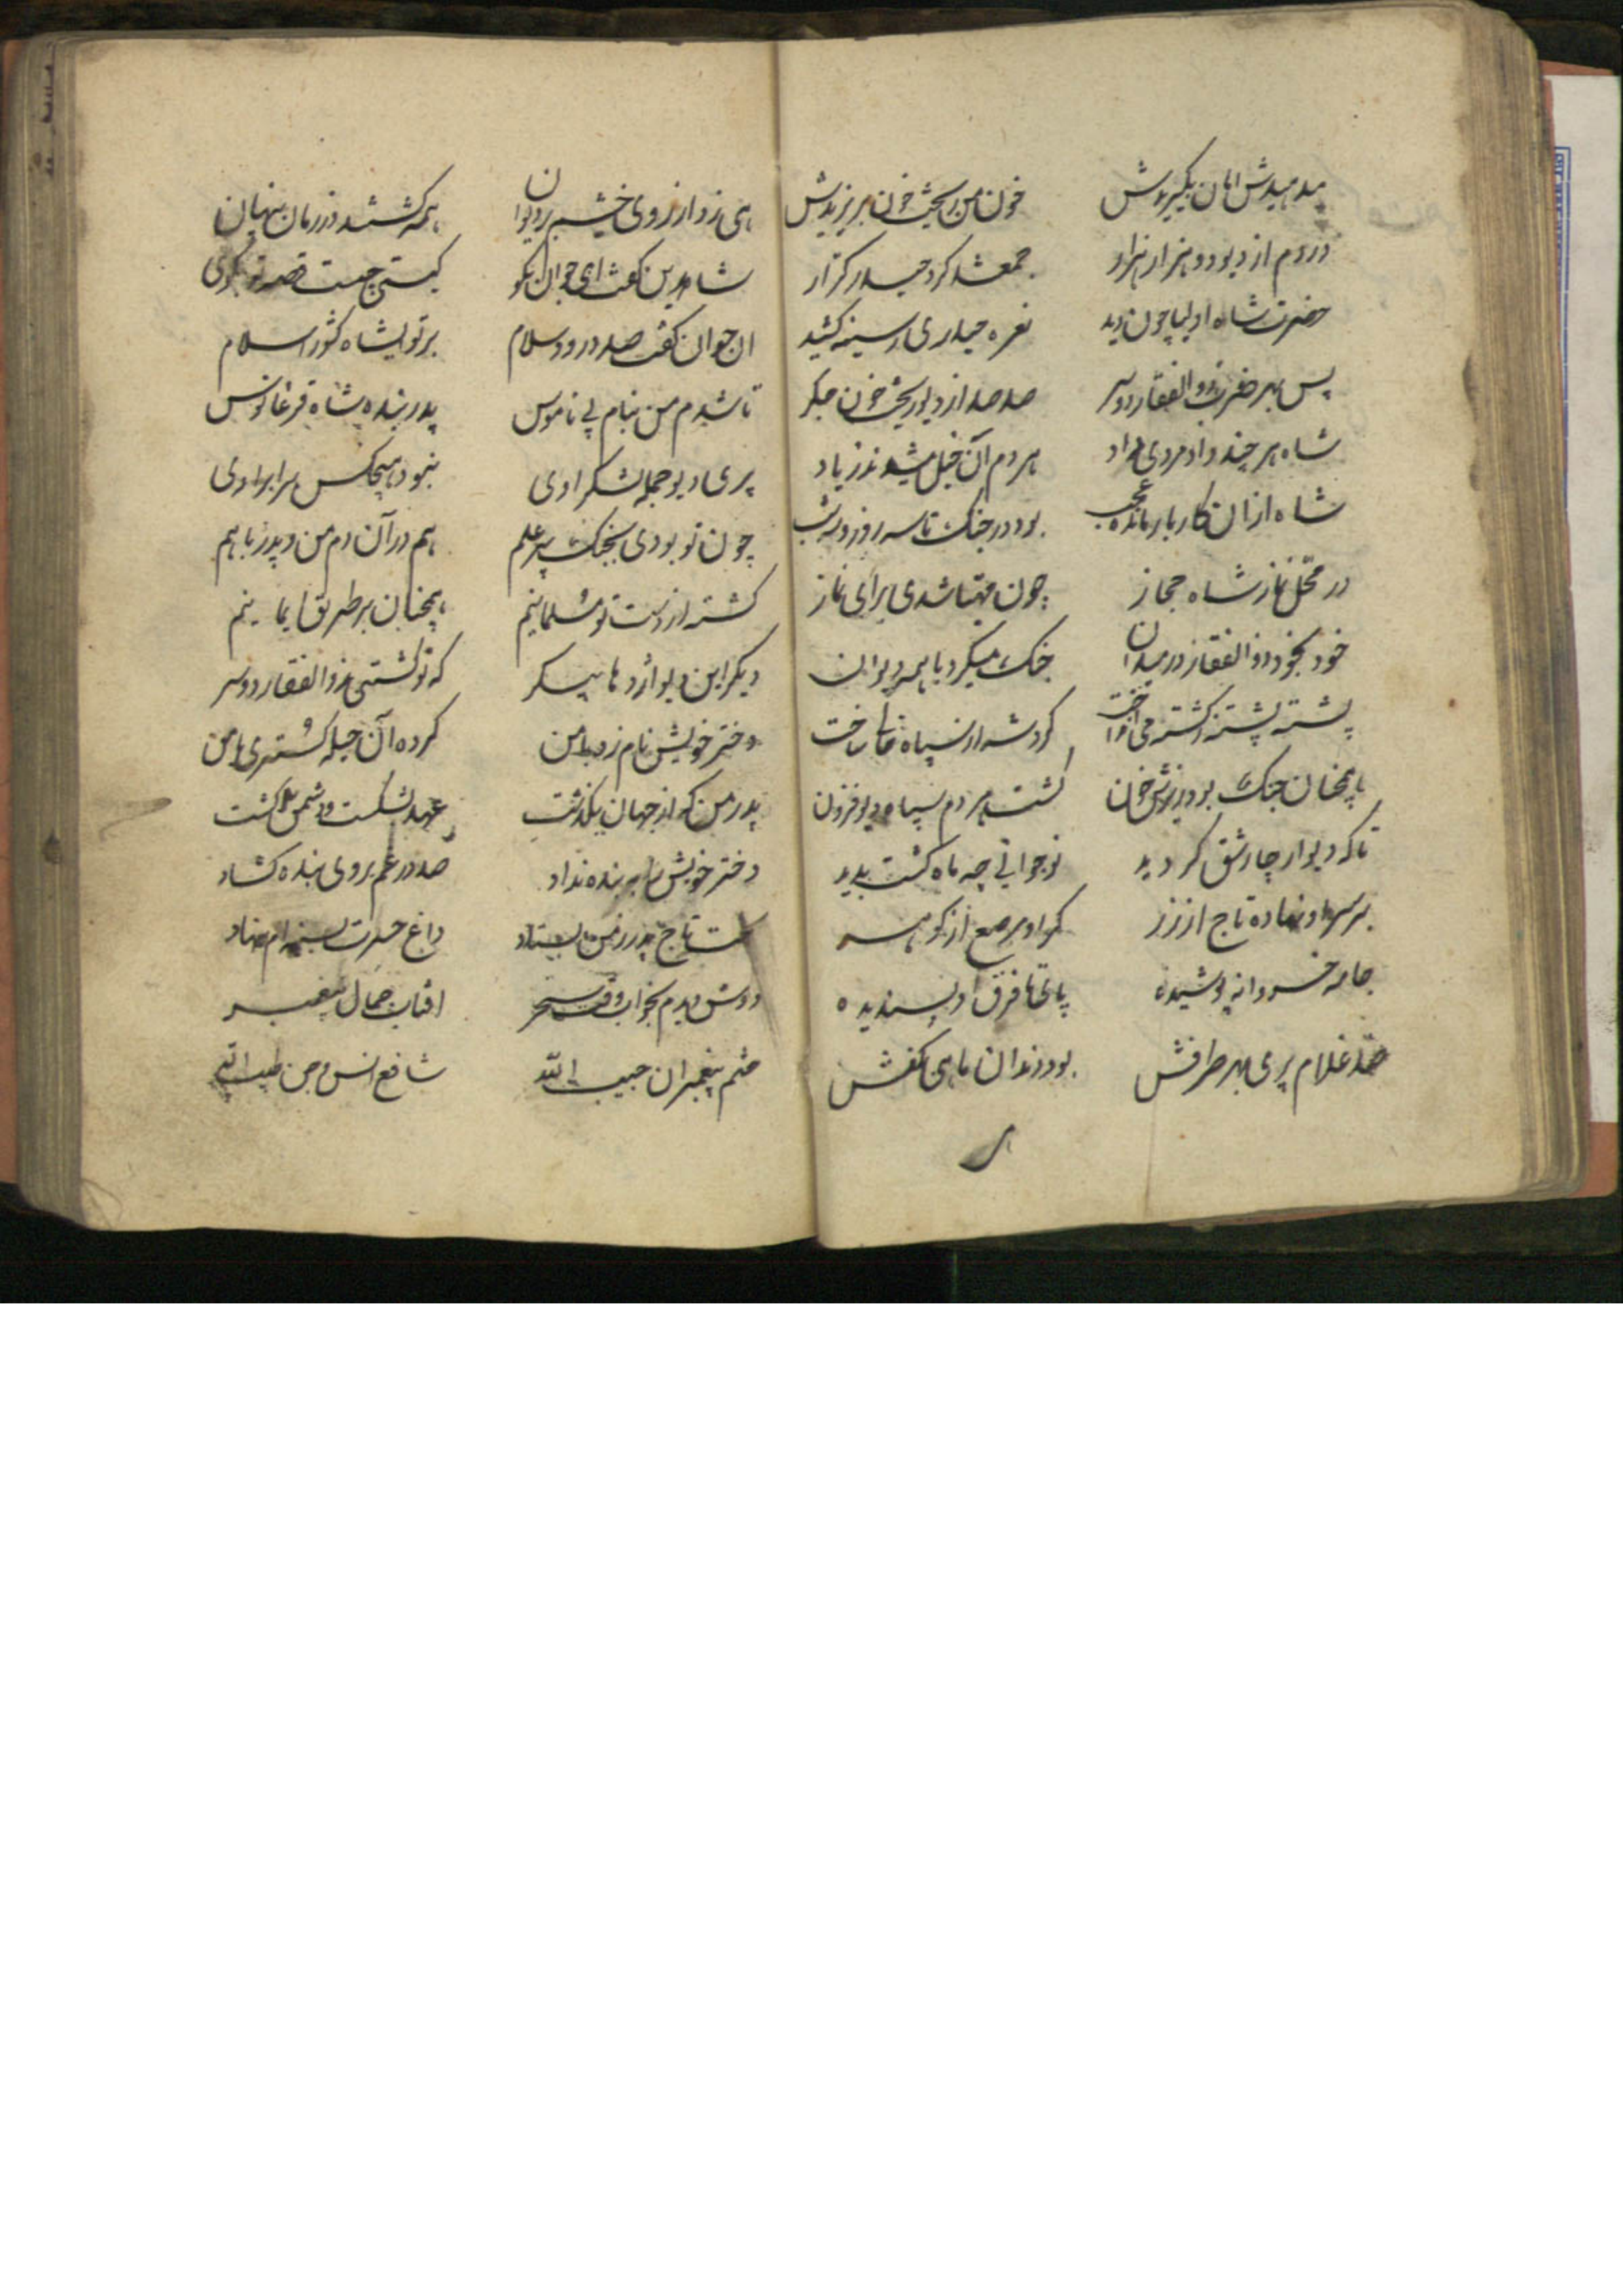 مدهیدش امان بگیریدش خون من ریخت خون بریزیدش
در دم از دیو دو هزار هزار جمع شد گرد حیدر کرار
حضرت شاه اولیا چون دید نعره حیدری ز سینه کشید
پس بهر ضرب ذوالفقار دو سر صد صد از دیو ریخت خون جگر
شاه هر چند داد مردی داد هر دم آن خیل میشدند زیاد
شاه ازان کار بار مانده عجب بود در جنک تا سه روز و سه شب
در محل نماز شاه حجاز چون مهیا شدی برای نماز
خود بخود ذوالفقار در میدان جنک میکرد با همه دیوان
پشته پشته ز کشته می انداخت کرد شه از سپاه
باهمچنان جنک بود ریزش خون کشت هر دم سپاه دیو فزون
تا که دیوار چار شق کردید نوجوانی چه ماه کشت پدید
بر سر او نهاده تاج از زر کمر او مرصع از کوهر
جامه خسروانه پوشیده پای تا فرق او پسندیده
صد غلام پری بهر طرفش بود دندان ماهی کفش
هی زد از روی خشم بر دیوان همه کشتند در زمان پنهان
شاه دین کفت ای جوان نکو کیستی چیست قصه تو بکوی
ان جوان گفت صد درود و سلام بر تو ایشاه کشور اسلام
تا شدم من بنام پی ناموس پدر بنده شاه فرغانوس
پری و دیو جمله لشکر اوی نبود هیچکس برابر اوی
چون تو بودی بجنک بیر علم هم در آن دم من و پدر با هم
کشته از دست تو مسلمانیم همچنان بر طریق ایمانیم
دیکر این دیو اژدها پیکر که تو کشتی بذوالفقار دو سر
دختر خویش نام زد با من کرده آن حیله کستری با من
پدر من که از جهان بگذشت عهد بشکست و دشمن من کشت
دختر خویش را بر بنده نداد صد در غم بروی بنده کشاد
تخت تاج پدر ز من بستاد داغ حسرت بسینه ام بنهاد
دوش دیدم بخواب وقت سحر افتاب جمال پیغمبر
ختم پیغمبران حبیب الله شافع انس و جن طبیب الله